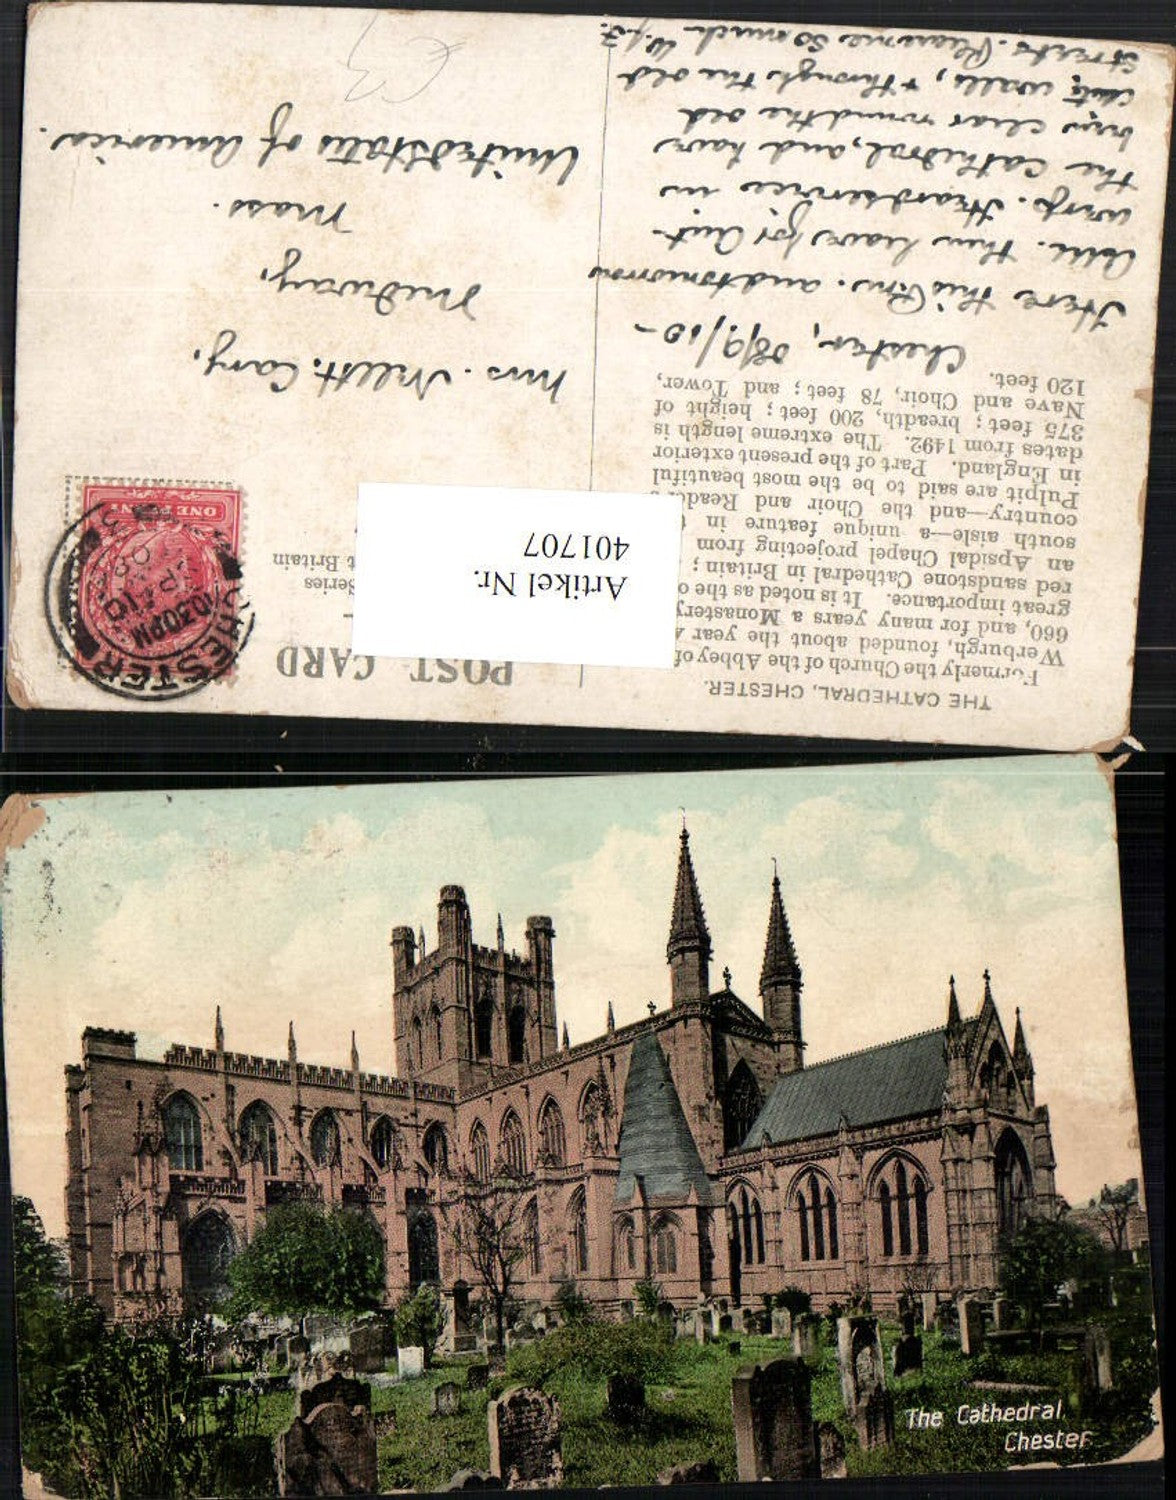 THE CATHEDRAL, CHESTER.
Formerly the Church of the Abbey of
Werburgh, founded about the year
660, and for many years a Monastery
great importance. It is noted as the
red sandstone Cathedral in Britain;
an Apsidal Chapel projecting from
south aisle—a unique feature in
country—and the Choir and Reader's
Pulpit are said to be the most beautiful
in England. Part of the present exterior
dates from 1492. The extreme length is
375 feet; breadth, 200 feet; height of
Nave and Choir, 78 feet; and Tower,
120 feet.
Chester,
Here this and tomorrow
then leave for
service in
the Cathedral, and have
round the old
walls, + through the old
Streets.
POST CARD
Series
Britain
Artikel Nr.
401707
ONE PENNY
CHESTER
10.30PM
10
Mrs. Cary,
Medway,
Mass.
United States of America.
The Cathedral,
Chester